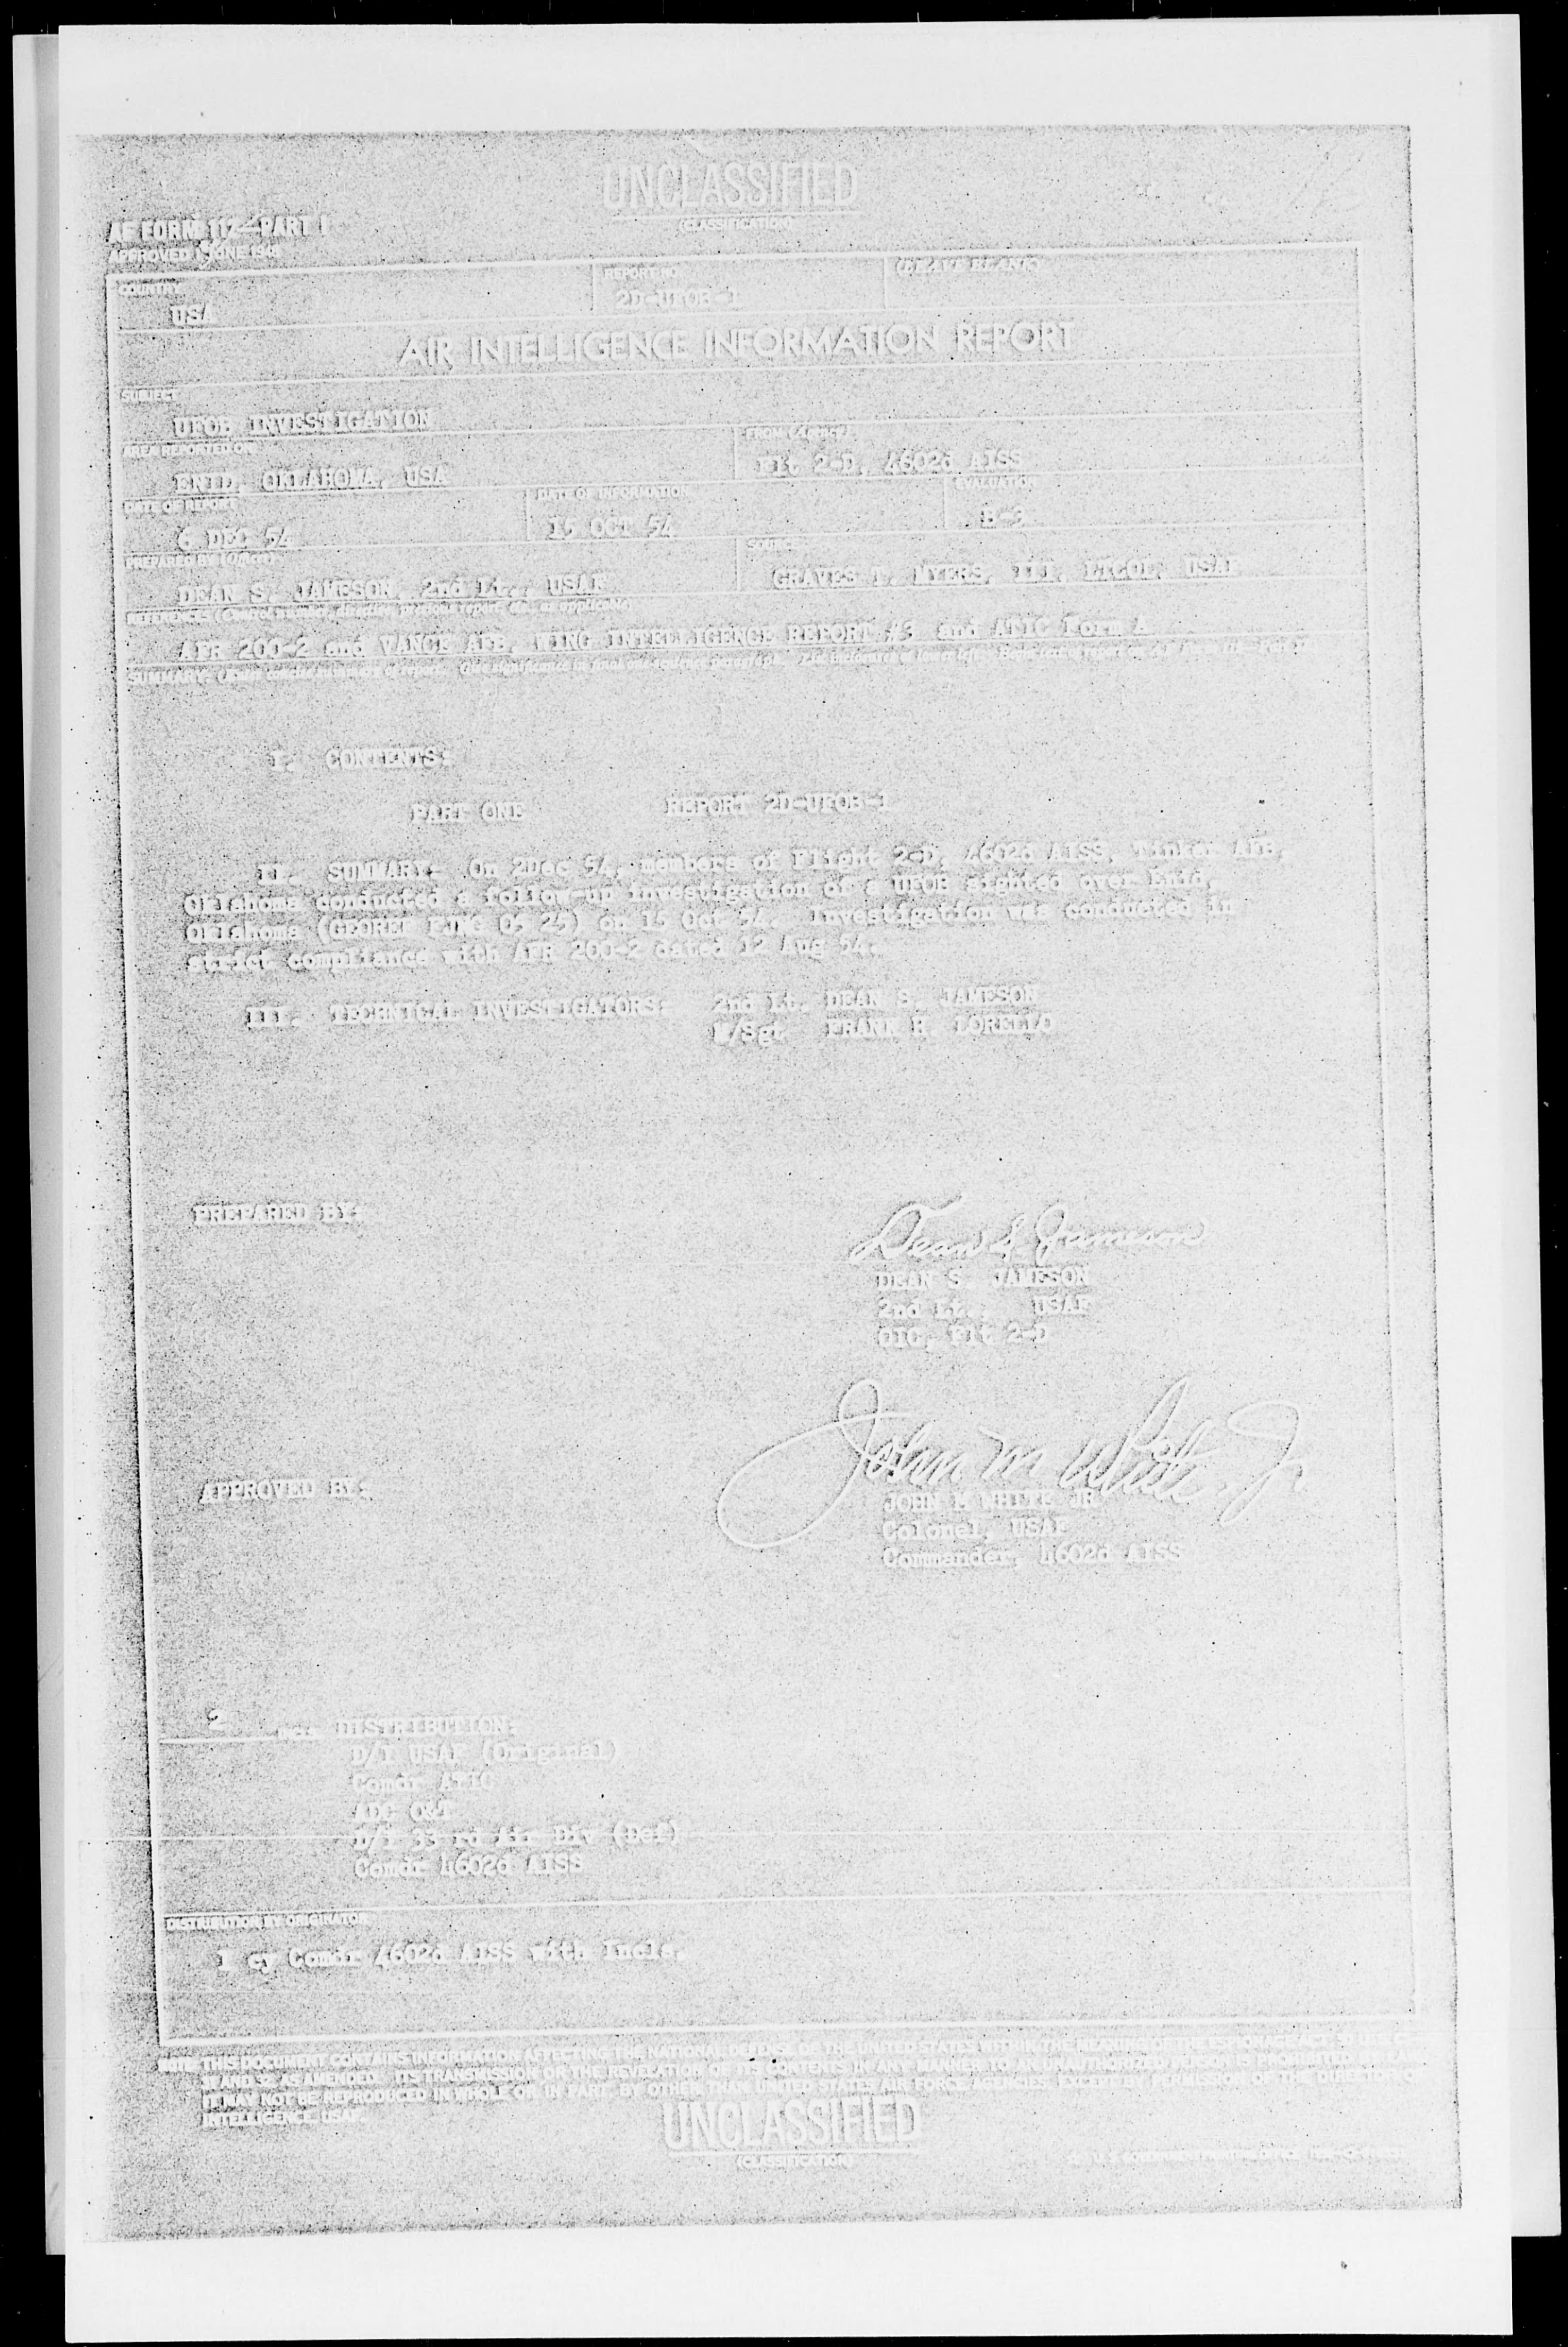 UNCLASSIFIED
(CLASSIFICATION)
AF FORM 112—PART I
APPROVED 1 JUNE 1948
COUNTRY
USA
REPORT NO.
2D-UFOB-1
(LEAVE BLANK)
AIR INTELLIGENCE INFORMATION REPORT
SUBJECT
UFOB INVESTIGATION
AREA REPORTED ON
ENID, OKLAHOMA, USA
FROM (Agency)
Flt 2-D, 4602d AISS
DATE OF REPORT
6 DEC 54
DATE OF INFORMATION
15 OCT 54
EVALUATION
B-3
PREPARED BY (Officer)
DEAN S. JAMESON, 2nd Lt., USAF
SOURCE
GRAVES T. MYERS, III, LtCOL, USAF
REFERENCES (Control number, directive, previous report, etc., as applicable)
AFR 200-2 and VANCE AFB, WING INTELLIGENCE REPORT #3 and ATIC Form A
SUMMARY: (Enter concise summary of report. Give significance in final one-sentence paragraph.
I. CONTENTS:
PART ONE REPORT 2D-UFOB-1
II. SUMMARY: On 2Dec 54, members of Flight 2-D, 4602d AISS, Tinker AFB,
Oklahoma conducted a follow-up investigation of a UFOB sighted over Enid,
Oklahoma (GEOREF EJNG 05 25) on 15 Oct 54. Investigation was conducted in
strict compliance with AFR 200-2 dated 12 Aug 54.
III. TECHNICAL INVESTIGATORS: 2nd Lt. DEAN S. JAMESON
M/Sgt FRANK R. LORELLO
PREPARED BY:
Dean S. Jameson
DEAN S. JAMESON
2nd Lt., USAF
OIC, Flt 2-D
APPROVED BY:
John M White, Jr.
JOHN M WHITE JR
Colonel, USAF
Commander, 4602d AISS
2 Incls DISTRIBUTION:
D/I USAF (Original)
Comdr ATIC
ADC O&T
D/I 33 rd Air Div (Def)
Comdr 4602d AISS
DISTRIBUTION BY ORIGINATOR
1 cy Comdr 4602d AISS with Incls.
NOTE: THIS DOCUMENT CONTAINS INFORMATION AFFECTING THE NATIONAL DEFENSE OF THE UNITED STATES WITHIN THE MEANING OF THE ESPIONAGE ACT, 50 U.S.C.
31 AND 32, AS AMENDED. ITS TRANSMISSION OR THE REVELATION OF ITS CONTENTS IN ANY MANNER TO AN UNAUTHORIZED PERSON IS PROHIBITED BY LAW.
IT MAY NOT BE REPRODUCED IN WHOLE OR IN PART, BY OTHER THAN UNITED STATES AIR FORCE AGENCIES, EXCEPT BY PERMISSION OF THE DIRECTOR OF
INTELLIGENCE, USAF.
UNCLASSIFIED
(CLASSIFICATION)
U. S. GOVERNMENT PRINTING OFFICE